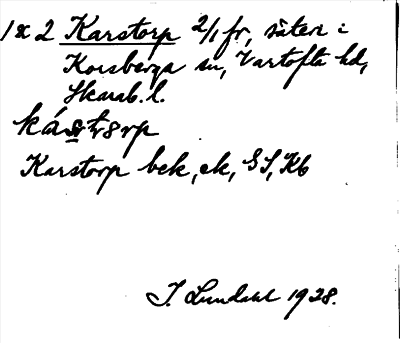 1 x 2 Karstorp 2/1 fr, säteri i
Korsberga sn, Vartofta hd,
Skarab. l.
Karstorp bek, ek, GS, Kb
I. Lundahl 1928.